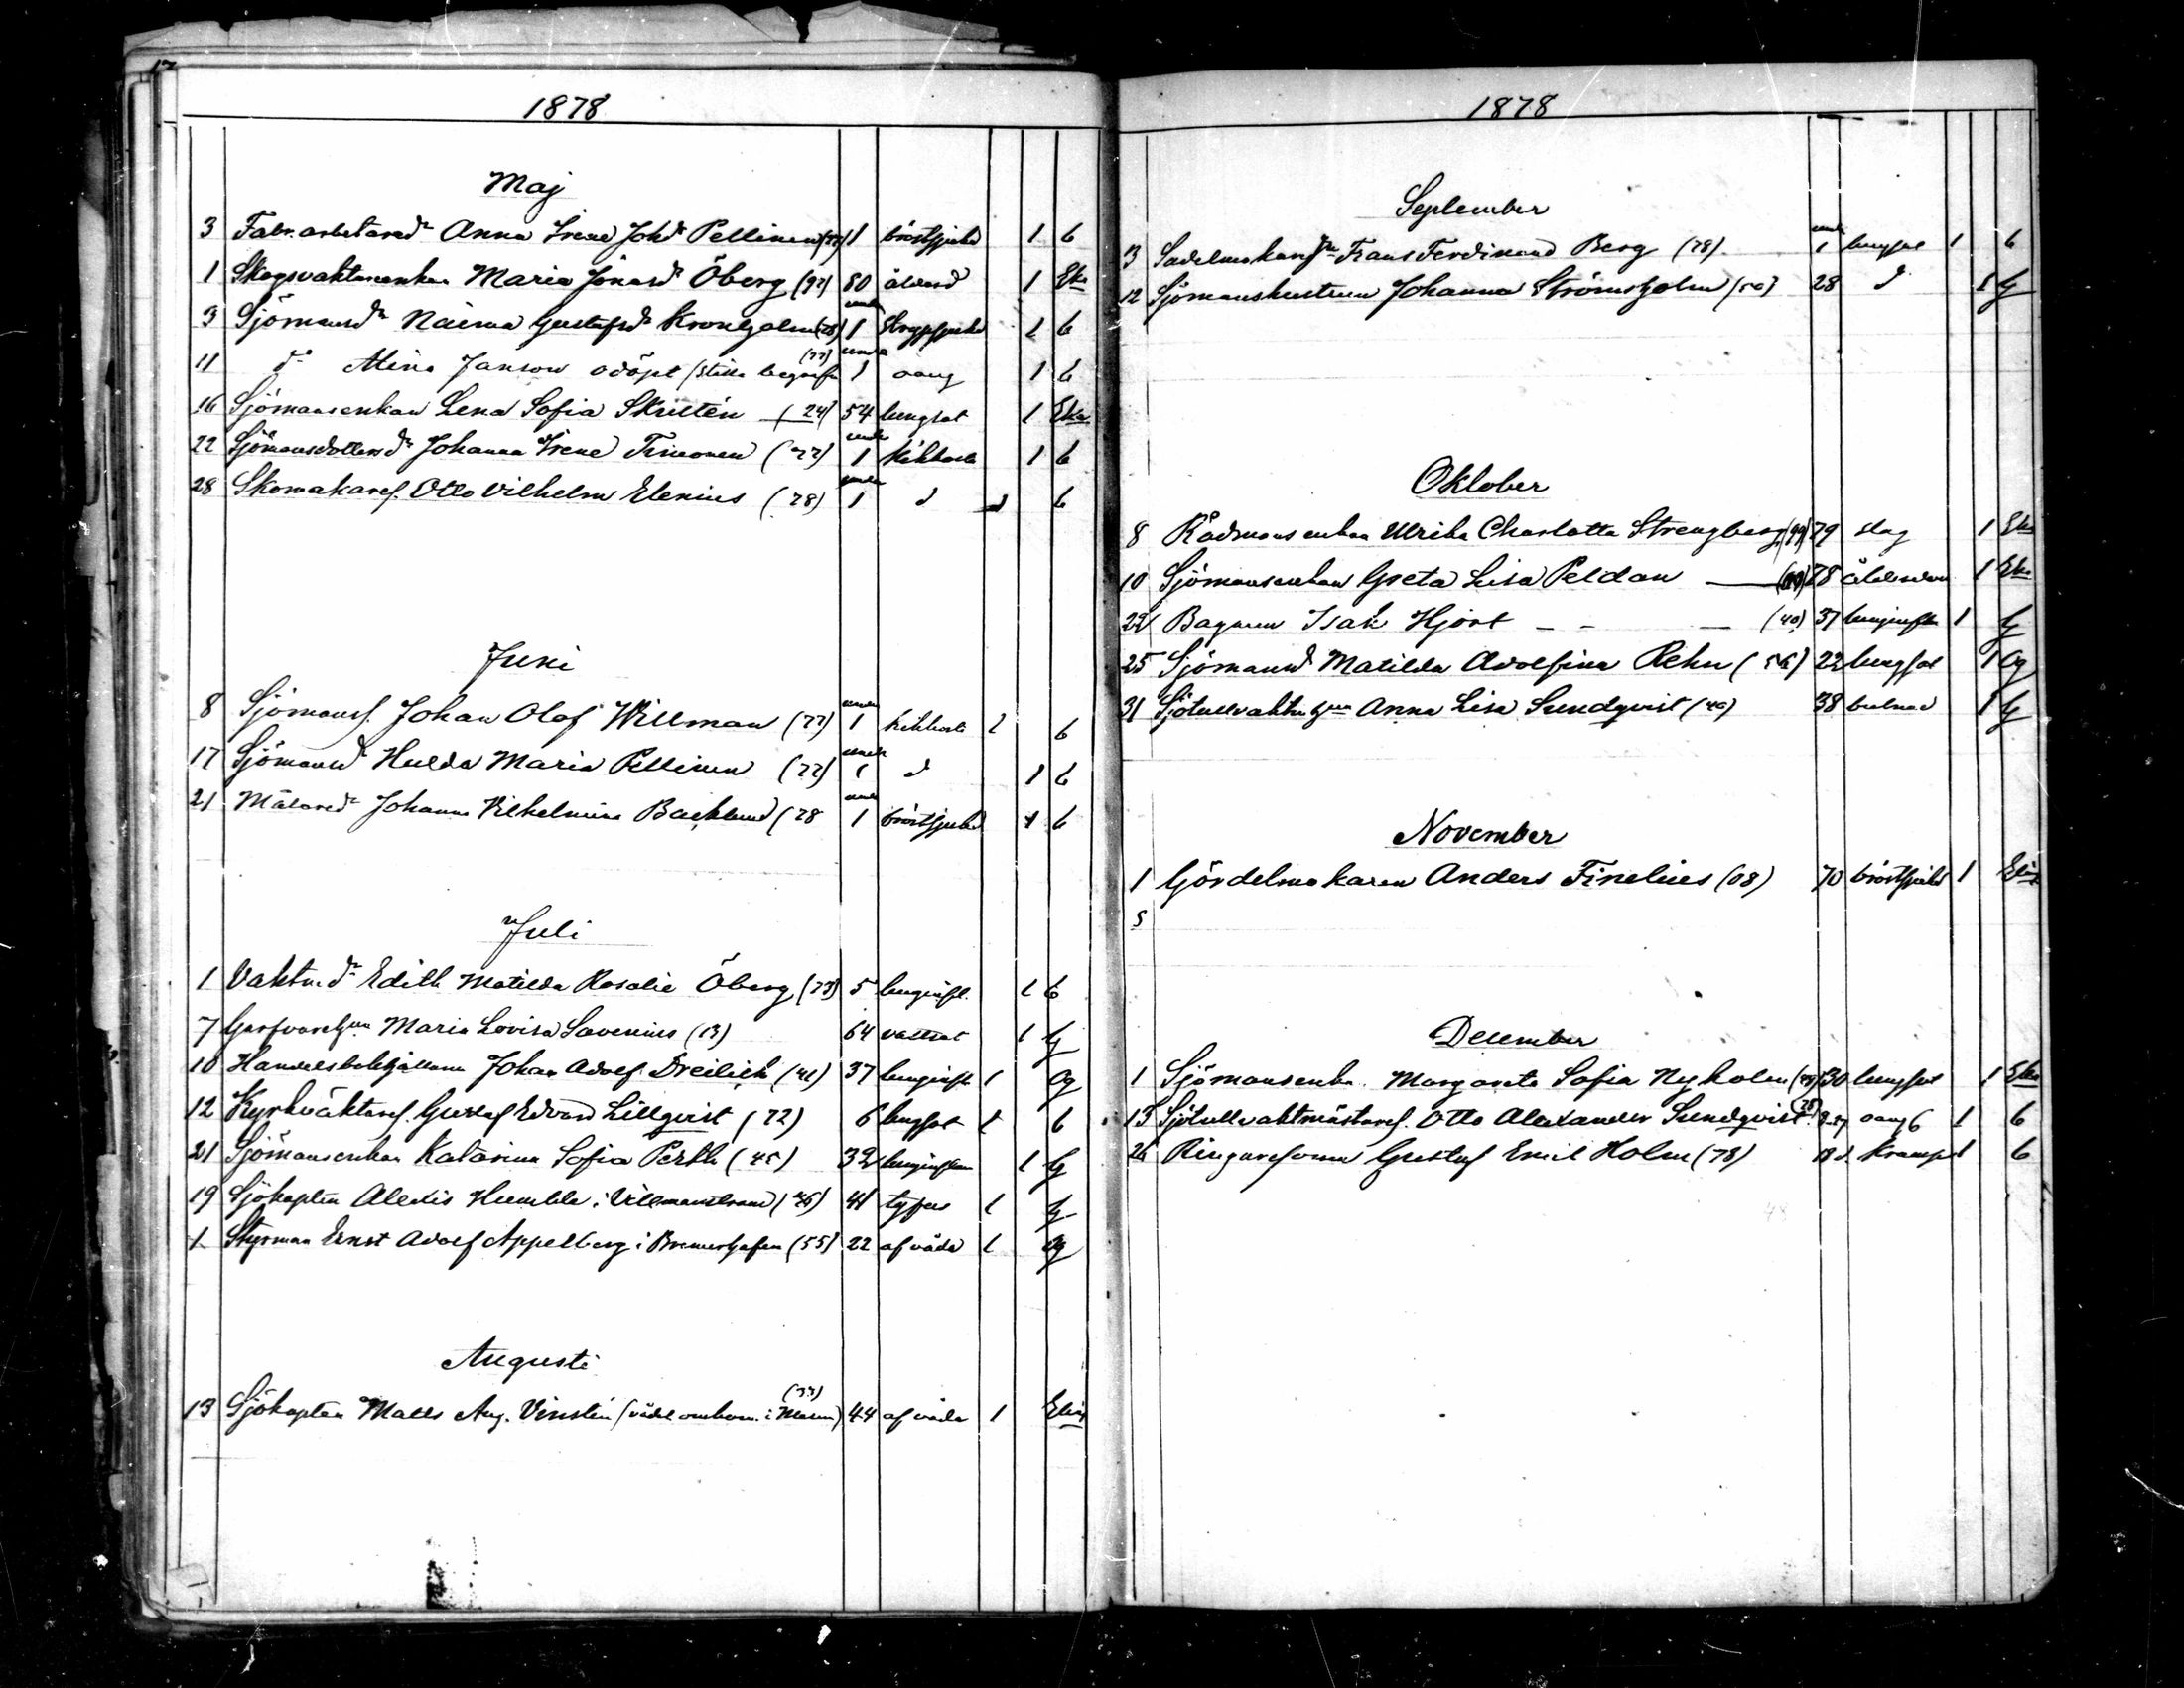 1878
Maj
3 Fabr.arbetared:r Anna Irene Joh:dr Pellinen (77) 1 bröstsjukd 1 b
1 Skogsvaktareenkan Maria Jonasd:r Öberg (97) 80 ålderd 1 Eka
3 Sjömansd:r Naima Gustafsd:r Kronholm (78) under 1 1 b
11 d:o Mina Janson odöpt (stilla begrafn (77) under 1 oang 1 b
16 Sjömansenkan Lena Sofia Skrutén (24) 54 lungsot 1 Eka
22 Sjömansdotterd:r Johanna Irene Timonen (77) under 1 kikhosta 1 b
28 Skomakares. Otto Vilhelm Elenius (78) under 1 d d b
Juni
8 Sjömanss. Johan Olof Willman (77) under 1 kikhosta 1 b
17 Sjömansd Hulda Maria Pellinen (77) under 1 d 1 b
21 Målared:r Johanna Vilhelmina Backlund (78 under 1 bröstsjukd 1 b
Juli
1 Vaktm.d:r Edith Matilda Rosalie Öberg (73) 5 lunginfl. 1 b
7 Garfvareh:un Maria Lovisa Savenius (13) 64 vattsot 1 g
10 Handelsbokhållaren Johan Adolf Dreilick (41) 37 lunginfl 1 og
12 Kyrkväktares. Gustaf Edvard Lillqvist (72) 6 lungsot 1 b
21 Sjömansenkan Katarina Sofia Perth (45) 32 lunginflam 1 g
19 Sjökapten Alexis Humble i Villmanstrand (36) 41 tyfus 1 g
1 Styrman Ernst Adolf Appelberg i Bremerhafen (55) 22 af våda 1 og
Augusti
13 Sjökapten Matts Aug. Vinstén (vådl omkom. i (33) 44 af våda 1 Enk
1878
September
3 Sadelmakares:n Frans Ferdinand Berg (78) under 1 lungsot 1 b
12 Sjömanshustrun Johanna Strömsholm (50) 28 d 1 g
Oktober
8 Rådmansenkan Ulrika Charlotta Strengberg (99) 79 slag 1 Eka
10 Sjömansenkan Greta Lisa Peldan 78 1 Eka
22 Bagaren Isak Hjort (40) 37 lunginfl 1 g
25 Sjömansd Matilda Adolfina Rehn (56) 22 lungsot 1 og
31 Sjötullvaktm h:un Anna Lisa Sundqvist (40) 38 bulnad 1 g
November
1 Gördelmakaren Anders Finelius (08) 70 bröstsjukd 1 Enk
5
December
1 Sjömansenka. Margareta Sofia Nyholm 30 lungsot 1 Eka
13 Sjötullvaktmästares. Otto Alexander Sundqvist (78) oang 6 1 b
26 Ringaresonen Gustaf Emil Holm (78) 18 d. kramp 1 b